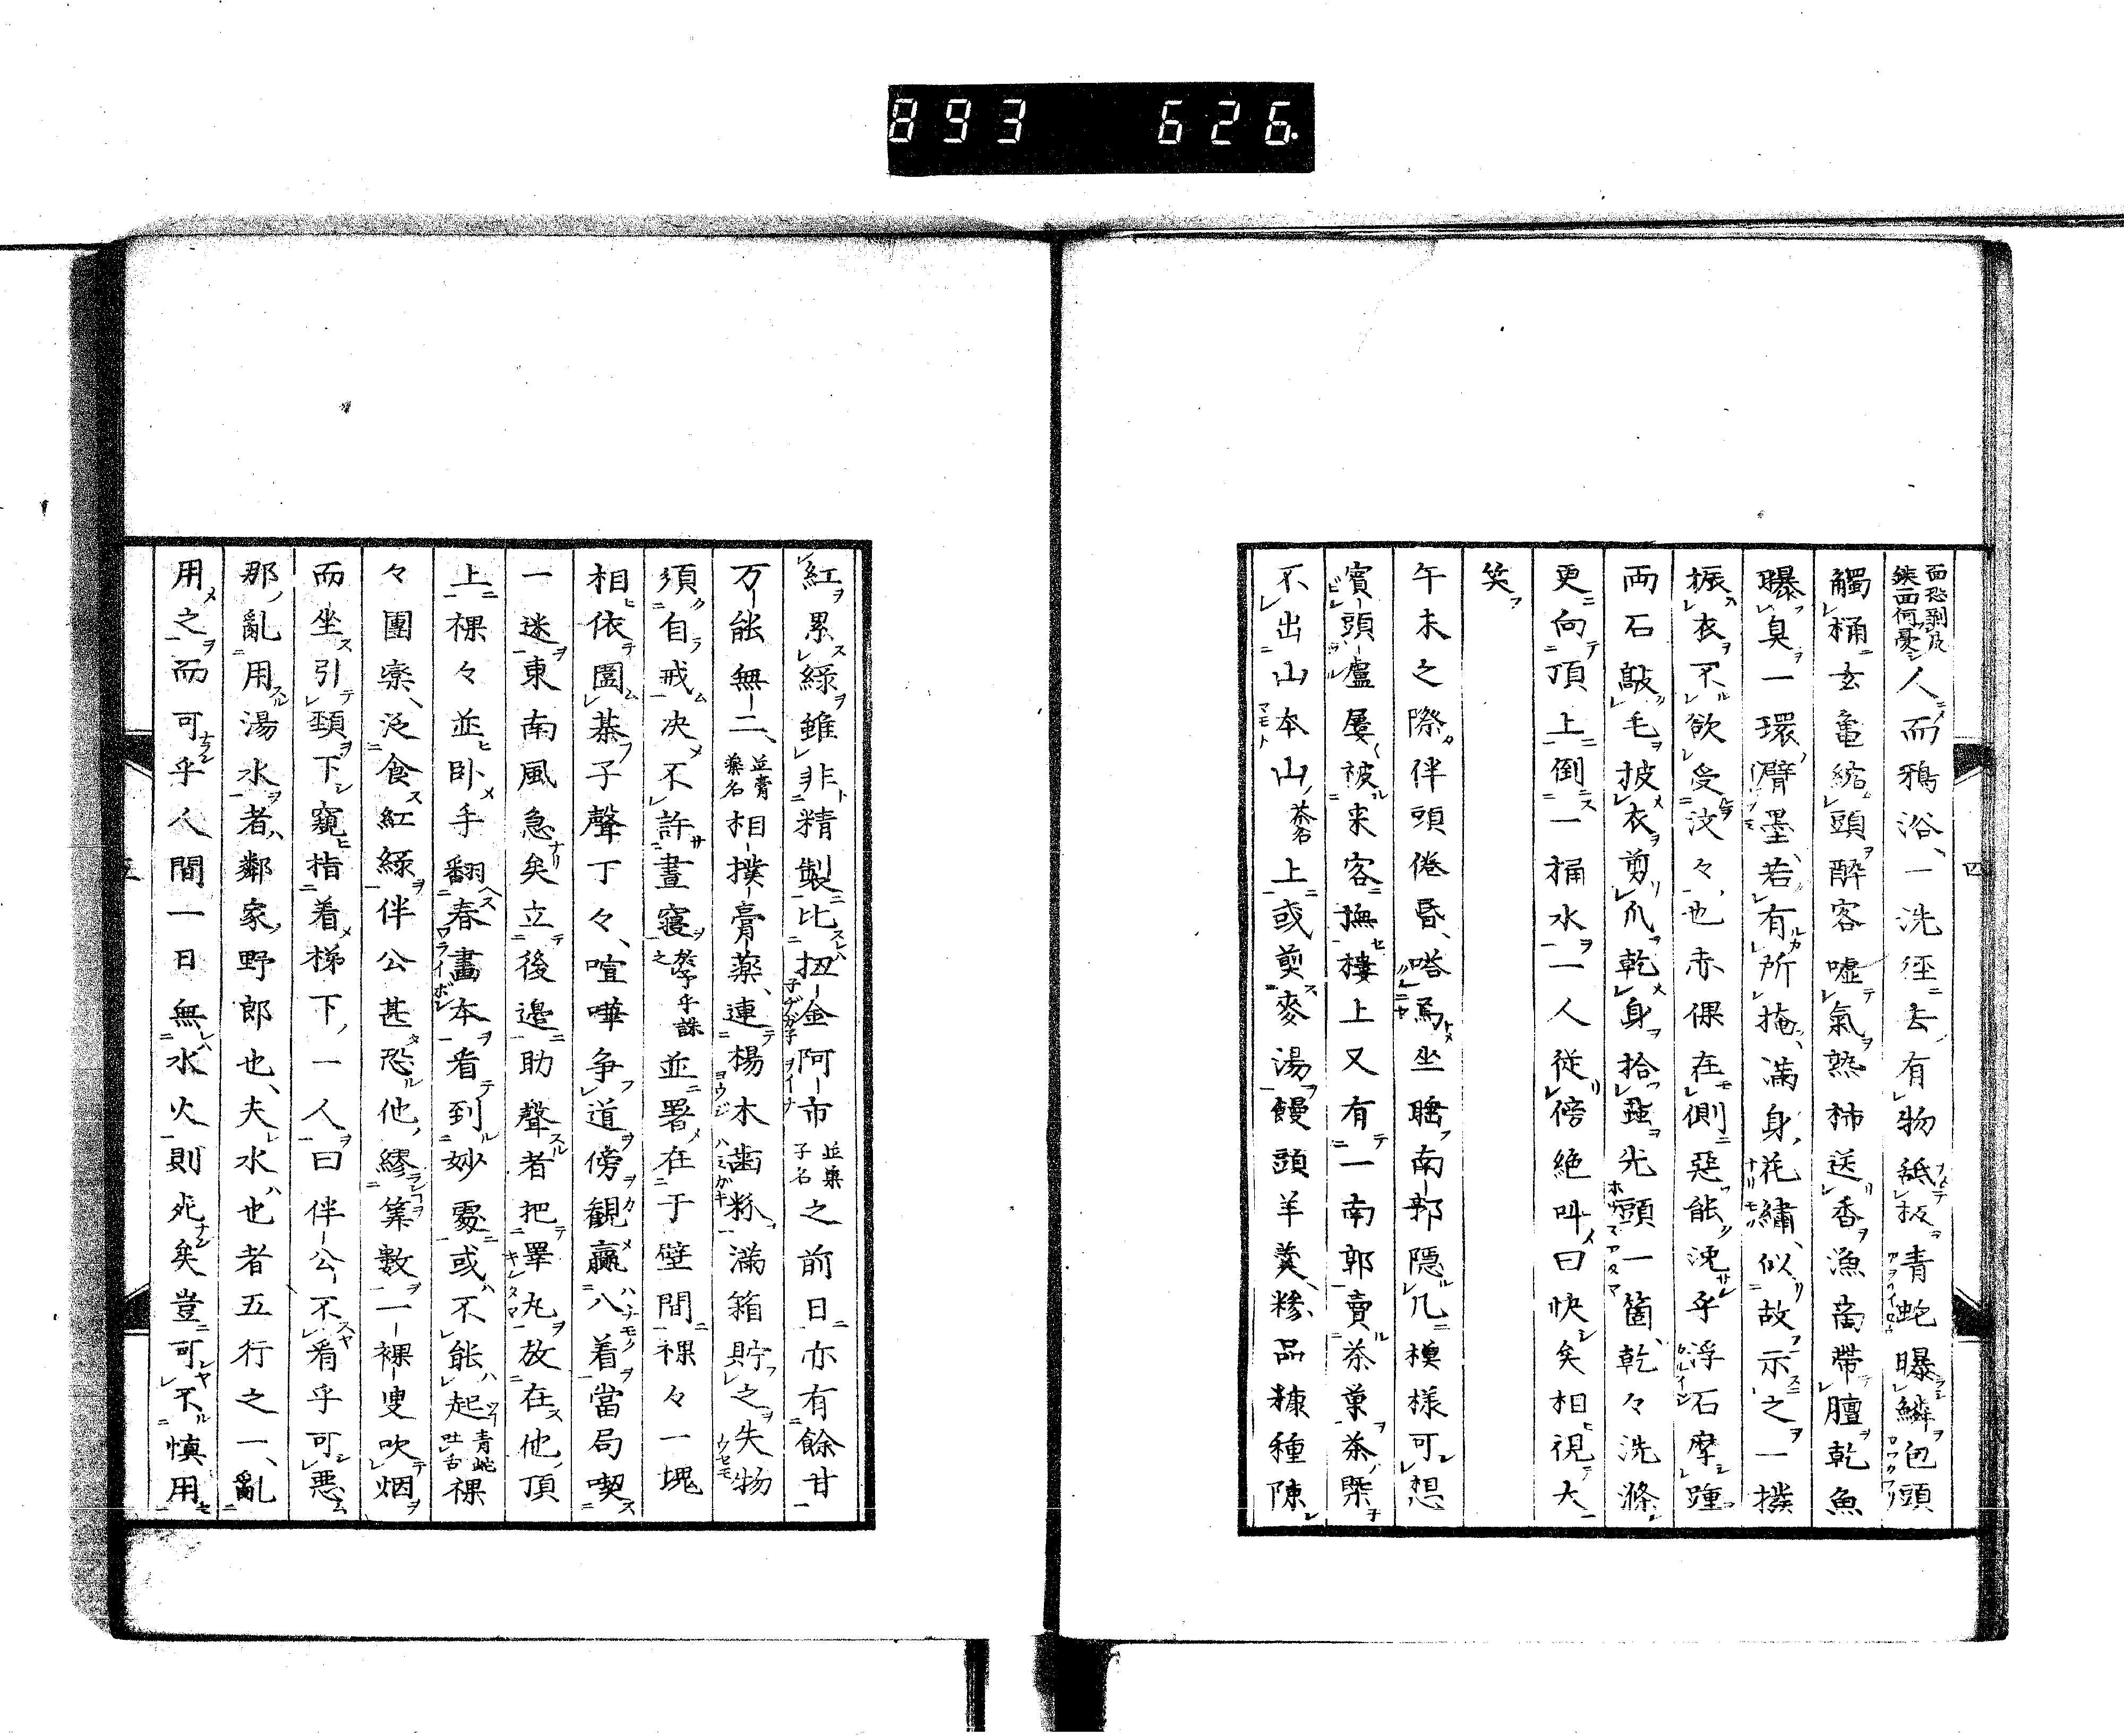 893 626
四
面恐剝及鉄面何憂人而鴉浴、一洗径去有物舐板青蛇曝鱗包頭
觸桶玄亀縮頭酔客嘘氣熟柿送香漁商帯膻乾魚
曝臭一環臂墨、若有所掩、満身花繡、似故示之一撲
振衣不欲受汶々也赤倮在側惡能浼乎浮石摩踵
両石敲毛披衣剪爪乾身拾虱光頭一箇、乾々洗滌
更向頂上倒一桶水一人従傍絶叫曰快矣相視大
笑
午未之際伴頭倦昏、嗒焉坐睡南郭隠几模様可想
賓頭盧屡被来客撫楼上又有一南郭賣茶菓茶槩
不出山本山茶名上或煎麥湯饅頭羊羹、糝品糠種陳
紅累緑雖非精製比扭金阿市並菓子名之前日亦有餘甘
万能無二、並膏藥名相撲膏藥、連楊木歯粉満箱貯之失物
須自戒决不許晝寝於予乎誅之並署在于壁間裸々一塊
相依圍棊子聲丁々、喧嘩争道傍観贏八着當局喫
一迷東南風急矣立後邉助聲者把睪丸放在他頂
上裸々並卧手翻春畫本看到妙處或不能起青蛇吐舌裸
々團欒、泛食紅緑伴公甚恐他繆筭數一裸叟吹烟
而坐引頸下窺指着梯下一人曰伴公不看乎可悪
那亂用湯水者鄰家野郎也、夫水也者五行之一、亂
用之而可乎人間一日無水火則死矣豈可不慎用